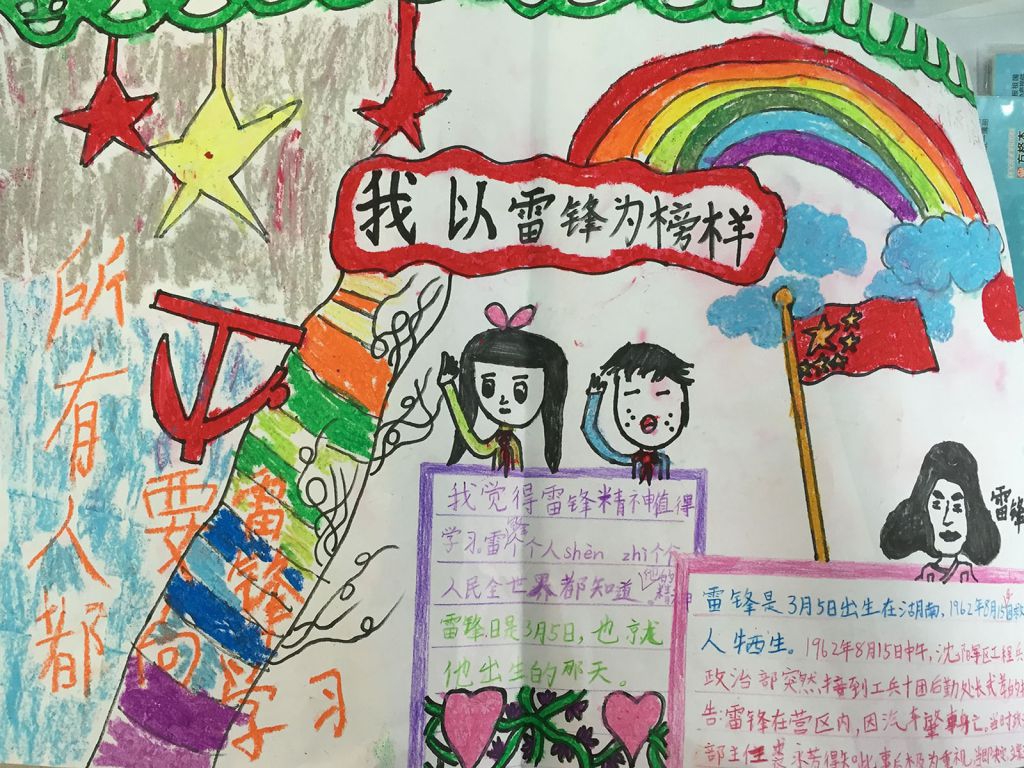 我以雷锋为榜样
所有人都
要向
雷锋
学习
我觉得雷锋精神值得
学习。雷
个人shèn zhì个个
人民全世界都知道
雷锋日是3月5日,也就
他出生的那天。
雷锋
雷锋是3月5日出生在湖南,1962年8月15日
人牺生。1962年8月15日中午,沈阳军区工程兵
政治部突然接到工兵十团后勤处长
告:雷锋在营区内,因汽车
部主任